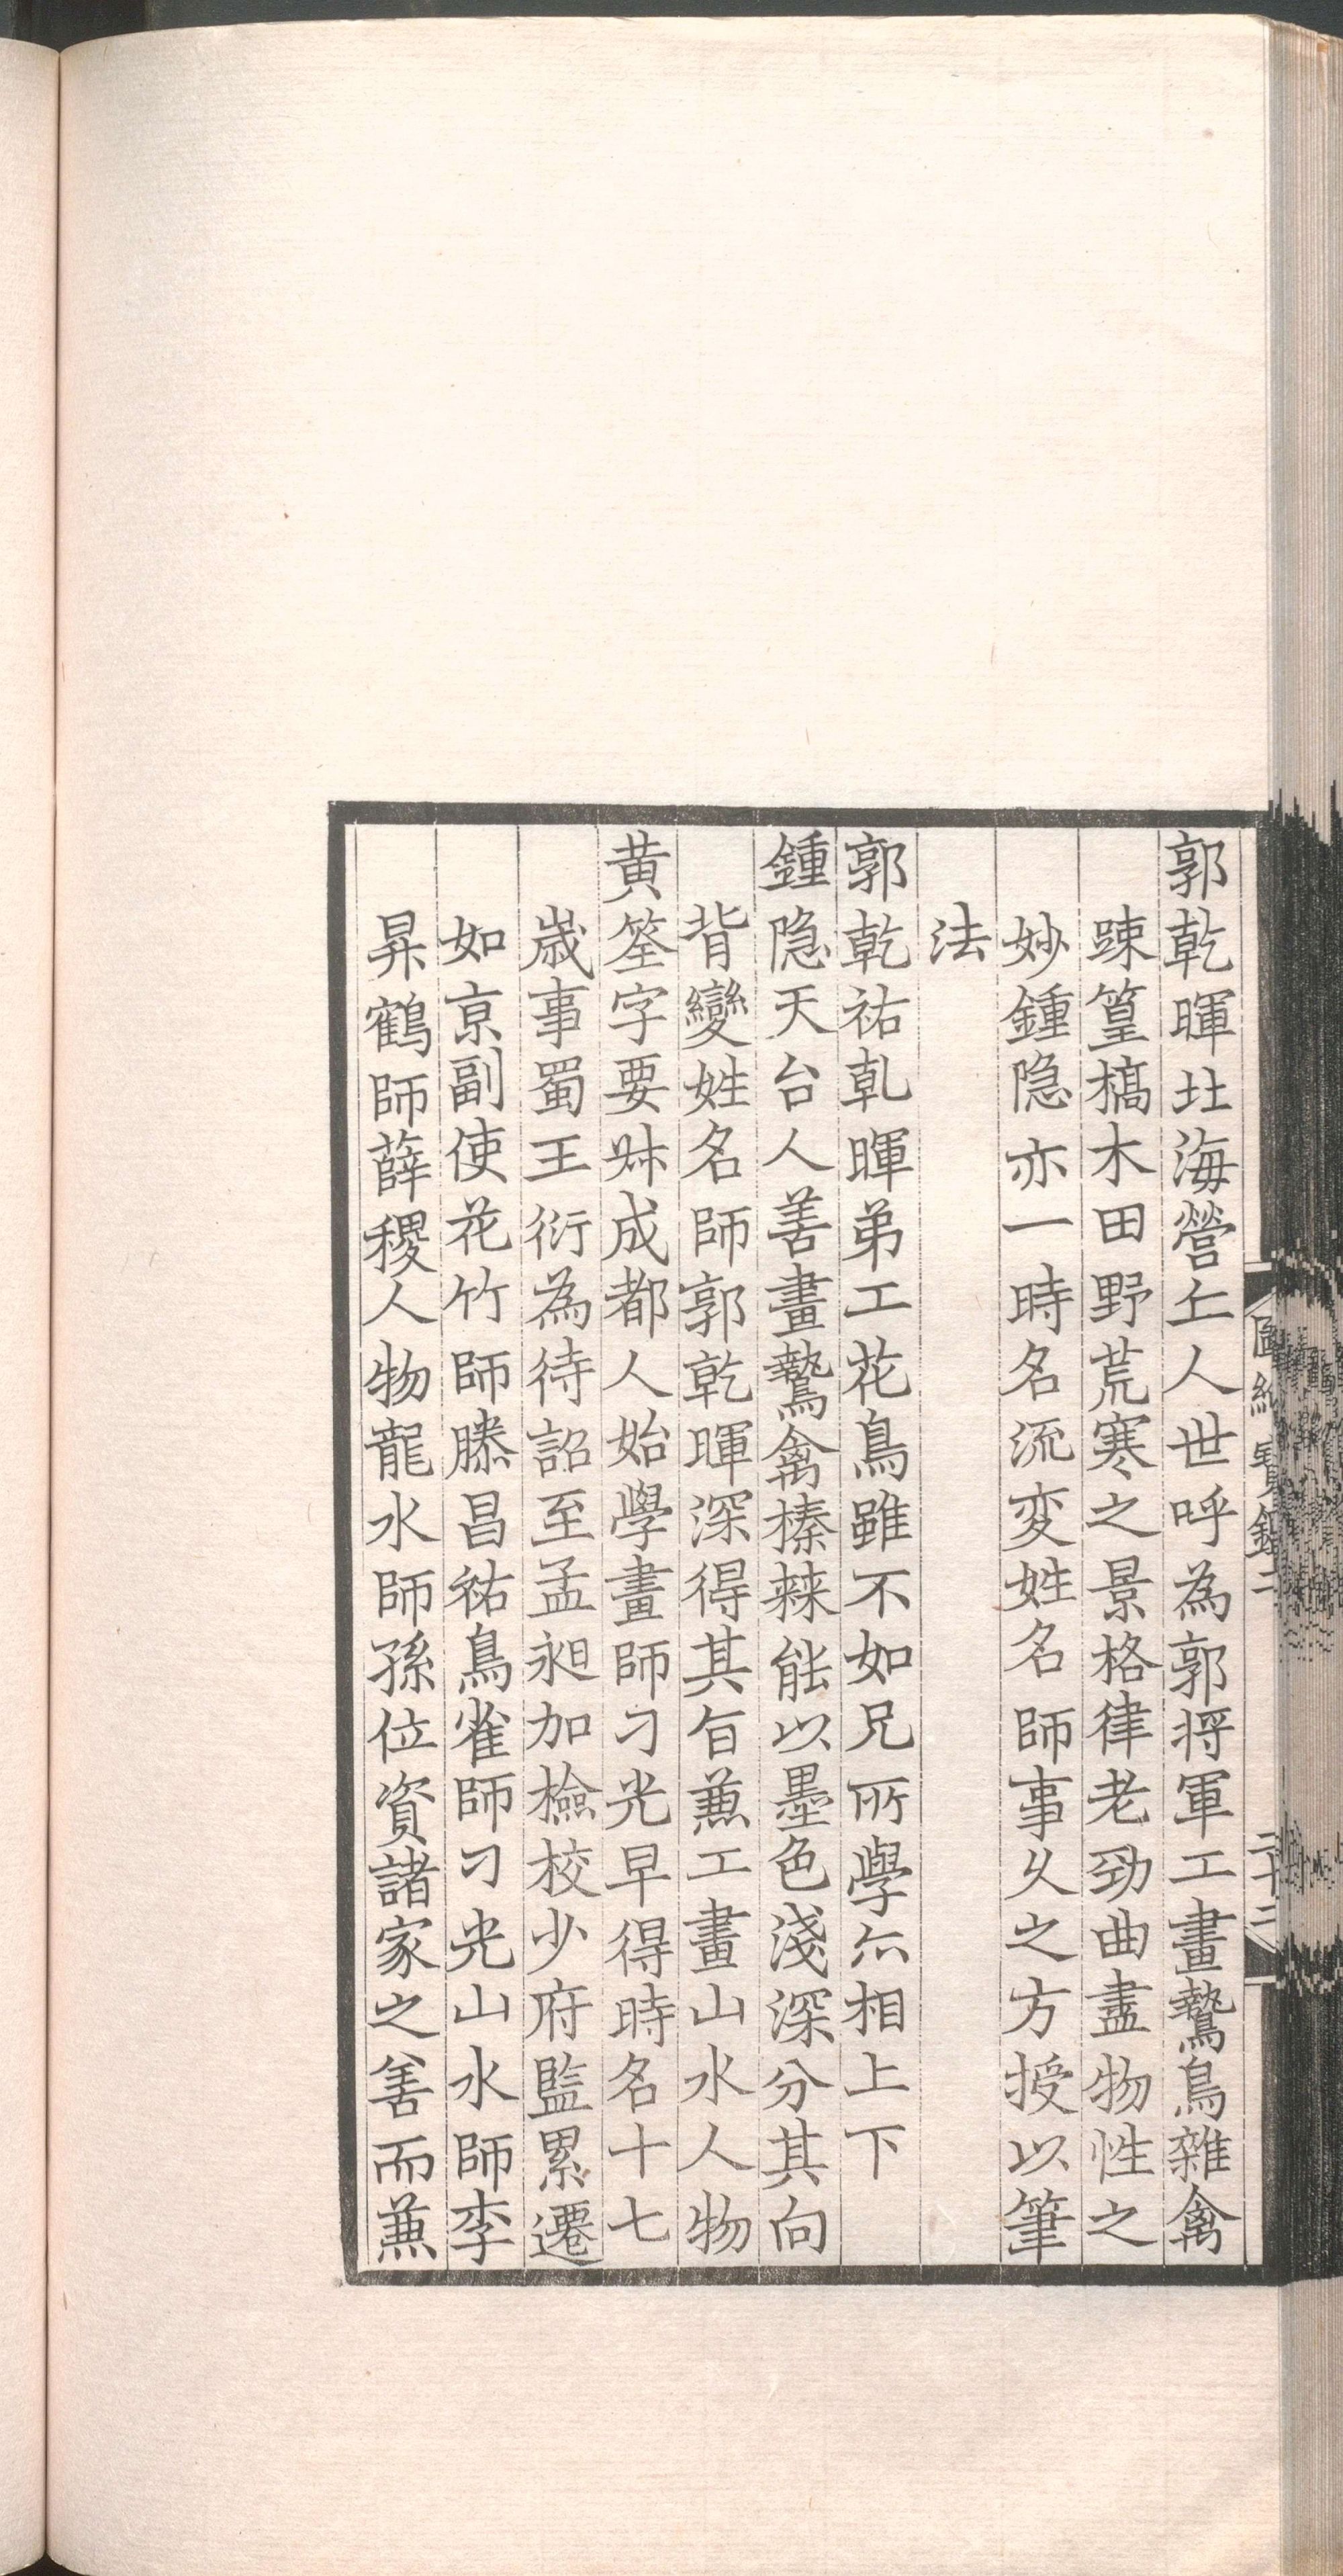 郭乾暉北海營丘人世呼為郭将軍工畫鷙鳥雜禽
踈篁槁木田野荒寒之景格律老勁曲盡物性之
妙鍾隐亦一時名流変姓名師事乆之方授以筆
法
郭乾祐乹暉弟工花鳥雖不如兄所學亦相上下
鍾隐天台人善畫鷙禽榛棘能以墨色淺深分其向
背變姓名師郭乾暉深得其旨兼工畫山水人物
黄筌字要叔成都人始學畫師刁光早得時名十七
嵗事蜀王衍為待詔至孟昶加檢校少府監累遷
如京副使花竹師滕昌祐鳥雀師刁光山水師李
昇鶴師薛稷人物龍水師孫位資諸家之善而兼
圖繪寶鑑二
二十二